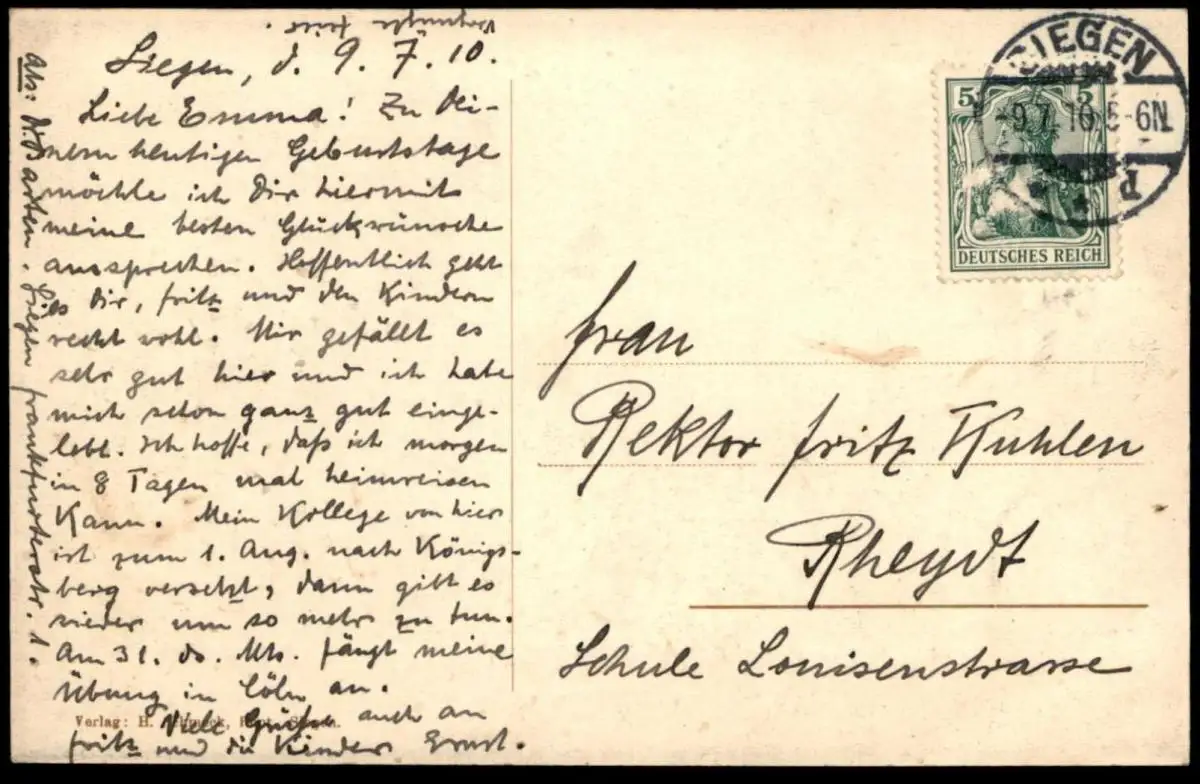 Vergnügte Feier.
Siegen, d. 9.7.10.
Liebe Emma! Zu Dei-
nem heutigen Geburtstage
möchte ich Dir hiermit
meine besten Glückwünsche
aussprechen. Hoffentlich geht
es Dir, Fritz und den Kindern
recht wohl. Mir gefällt es
sehr gut hier und ich habe
mich schon ganz gut einge-
lebt. Ich hoffe, daß ich morgen
in 8 Tagen mal heimreisen
kann. Mein Kollege von hier
ist zum 1. Aug. nach Königs-
berg versetzt, dann gibt es
wieder um so mehr zu tun.
Am 31. ds. Mts. fängt meine
Übung in Cöln an.
Viele Grüße auch an
Fritz und die Kinder Ernst.
Abs: Siegen Frankfurterstr. 1.
Verlag: H.
SIEGEN
-9.7.10.5-6N
5 5
DEUTSCHES REICH
Frau
Rektor Fritz Kuhlen
Rheydt
Schule Louisenstrasse